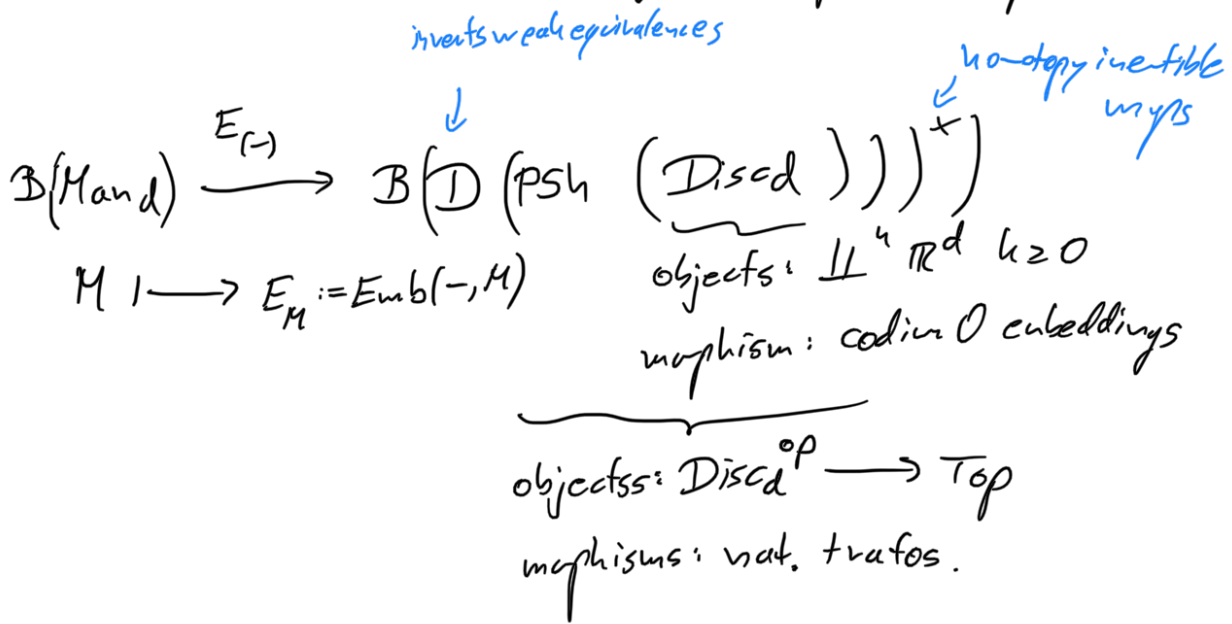 inverts weak equivalences
homotopy invertible
maps
B(Man_d) \xrightarrow{E_{(-)}} B(D(PSh(Disc_d)))^×)
M ⟼ E_M := Emb(-,M)
objects: ∐^k ℝ^d k≥0
morphism: codim 0 embeddings
objectss: Disc_d^{op} ⟶ Top
morphisms: nat. trafos.